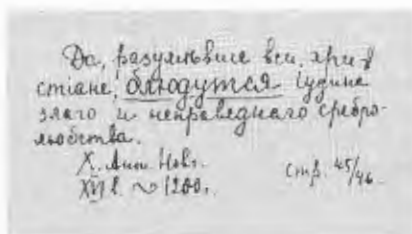 Да, разумѣвше вси, хри
стiане, блюдутся Iудина
злаго и неправеднаго сребро-
любства.
X. Ант. Новг.
XVI в. ~ 1200. стр. 45/46